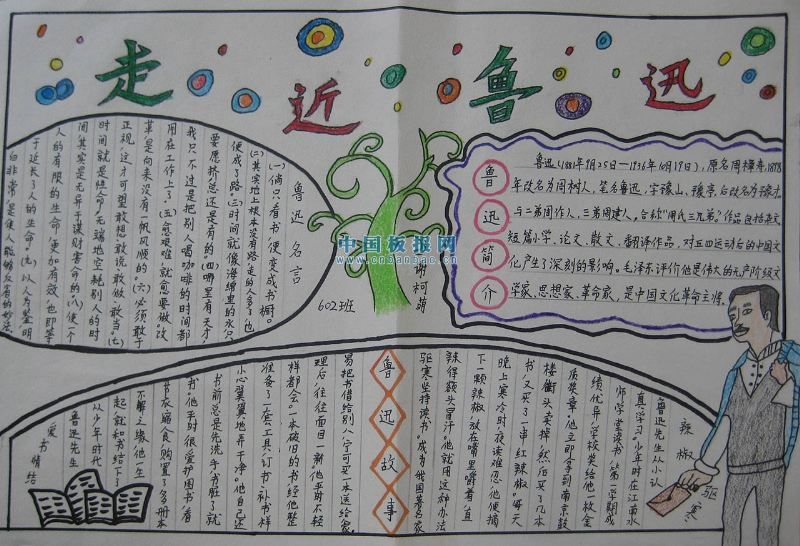 走近鲁迅
鲁迅名言
(一)倘只看书,便变成书橱。
(二)其实地上根本没有路,走的人多了,也
便成了路。(三)时间就像海绵里的水,只
要愿挤,总还是有的。(四)哪里有天才,
我只不过是把别人喝咖啡的时间都
用在工作上了。(五)愈艰难,就愈要做。改
革是向来没有一帆风顺的。(六)必须敢于
正视,这才可望敢想、敢说、敢做、敢当。(七)
时间就是性命,无端地空耗别人的时
间,其实是无异于谋财害命的。(八)使一个
人的有限的生命更加有效,也即等
于延长了人的生命。(九)以人为鉴,明
白非常,是使人能够反省的妙法。
602班
谢柯萌
中国板报网
鲁迅简介
鲁迅(1881年9月25日—1936年10月19日),原名周樟寿,1898
年改名为周树人,笔名鲁迅,字豫山、豫亭,后改名为豫才。
与二弟周作人、三弟周建人,合称“周氏三兄弟”。作品包括杂文、
短篇小学、论文、散文、翻译作品,对五四运动后的中国文
化产生了深刻的影响。毛泽东评价他是伟大的无产阶级文
学家、思想家、革命家、是中国文化革命主将。
鲁迅故事
辣椒驱寒
鲁迅先生从小认
真学习。少年时在江南水
师学堂读书,第一学期成
绩优异,学校奖给他一枚金
质奖章。他立即拿到南京鼓
楼街头卖掉,然后买了几本
书,又买了一串红辣椒。每天
晚上寒冷时,夜读难忍,他便摘
下一颗辣椒,放在嘴里嚼着,直
辣得额头冒汗。他就用这种办法
驱寒坚持读书。成为我国著名家
爱书情结
鲁迅先生
从少年时代
起,就和书结下了
不解之缘。他一生
节衣缩食,购置了多册本
书。他平时很爱护图书,看
书前总是先洗手,书脏了,就
小心翼翼地弄干净。他自己还
准备了一套工具,订书、补书样
样都会。一本破旧的书,经他整
理后,往往面目一新。他平时不轻
易把书借给别人,宁可买一本送给家